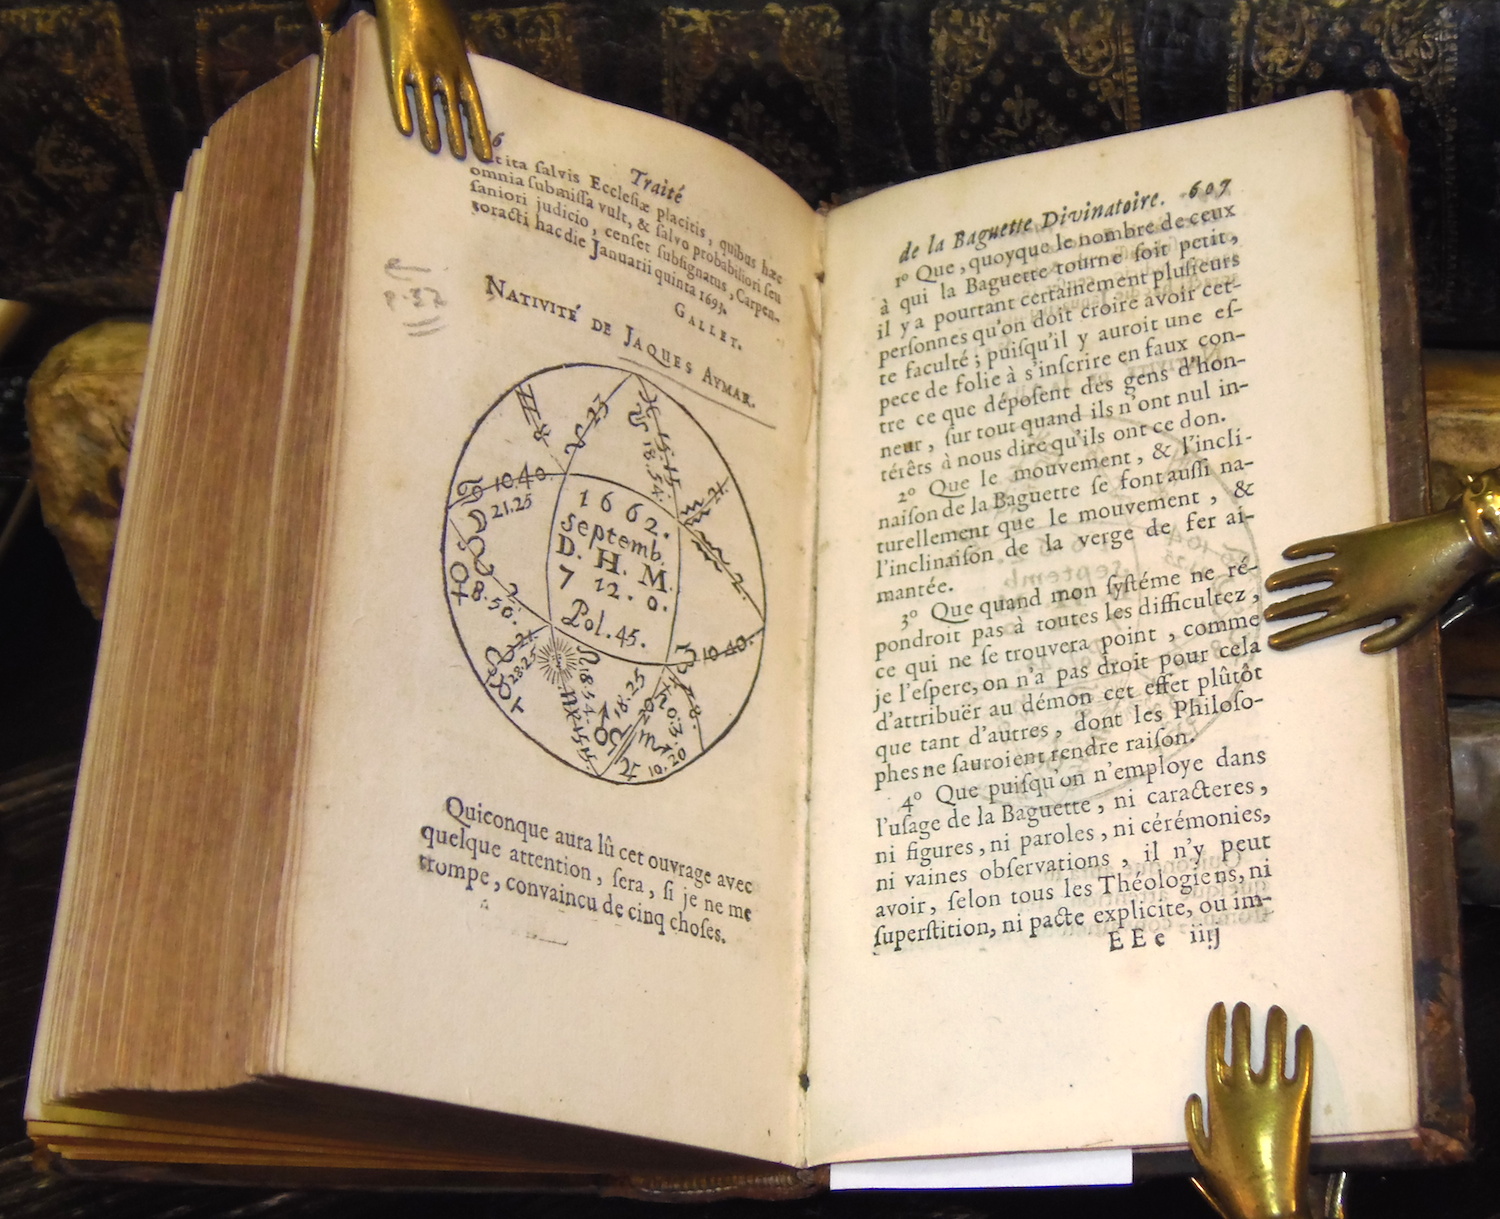 6
Traité
ita ſalvis Eccleſiæ placitis, quibus hæc
omnia ſubmiſſa vult, & ſalvo probabiliori ſeu
ſaniori judicio, cenſet ſubſignatus, Carpen-
toracti hac die Januarii quinta 1693.
GALLET.
NATIVITÉ DE JAQUES AYMAR.
p. 37
♌ 23
15.15
18.54.
♑ 10.40
21.25
1662.
septemb.
D. H. M.
7 12. 0.
Pol. 45.
♀
8.50.
28.25
18.54
15.15
18.25
20
♄ 0.3
10.20
10 40
Quiconque aura lû cet ouvrage avec
quelque attention, ſera, ſi je ne me
trompe, convaincu de cinq choſes.
de la Baguette Divinatoire. 607
1º Que, quoyque le nombre de ceux
à qui la Baguette tourne ſoit petit,
il y a pourtant certainement pluſieurs
perſonnes qu'on doit croire avoir cet-
te faculté; puiſqu'il y auroit une eſ-
pece de folie à s'inſcrire en faux con-
tre ce que dépoſent des gens d'hon-
neur, ſur tout quand ils n'ont nul in-
térêts à nous dire qu'ils ont ce don.
2º Que le mouvement, & l'incli-
naiſon de la Baguette ſe font auſſi na-
turellement que le mouvement, &
l'inclinaiſon de la verge de fer ai-
mantée.
3º Que quand mon ſyſtéme ne ré-
pondroit pas à toutes les difficultez,
ce qui ne ſe trouvera point, comme
je l'eſpere, on n'a pas droit pour cela
d'attribuër au démon cet effet plûtôt
que tant d'autres, dont les Philoſo-
phes ne ſauroient rendre raiſon.
4º Que puiſqu'on n'employe dans
l'uſage de la Baguette, ni caracteres,
ni figures, ni paroles, ni cérémonies,
ni vaines obſervations, il n'y peut
avoir, ſelon tous les Théologiens, ni
ſuperſtition, ni pacte explicite, ou im-
EEe iiij